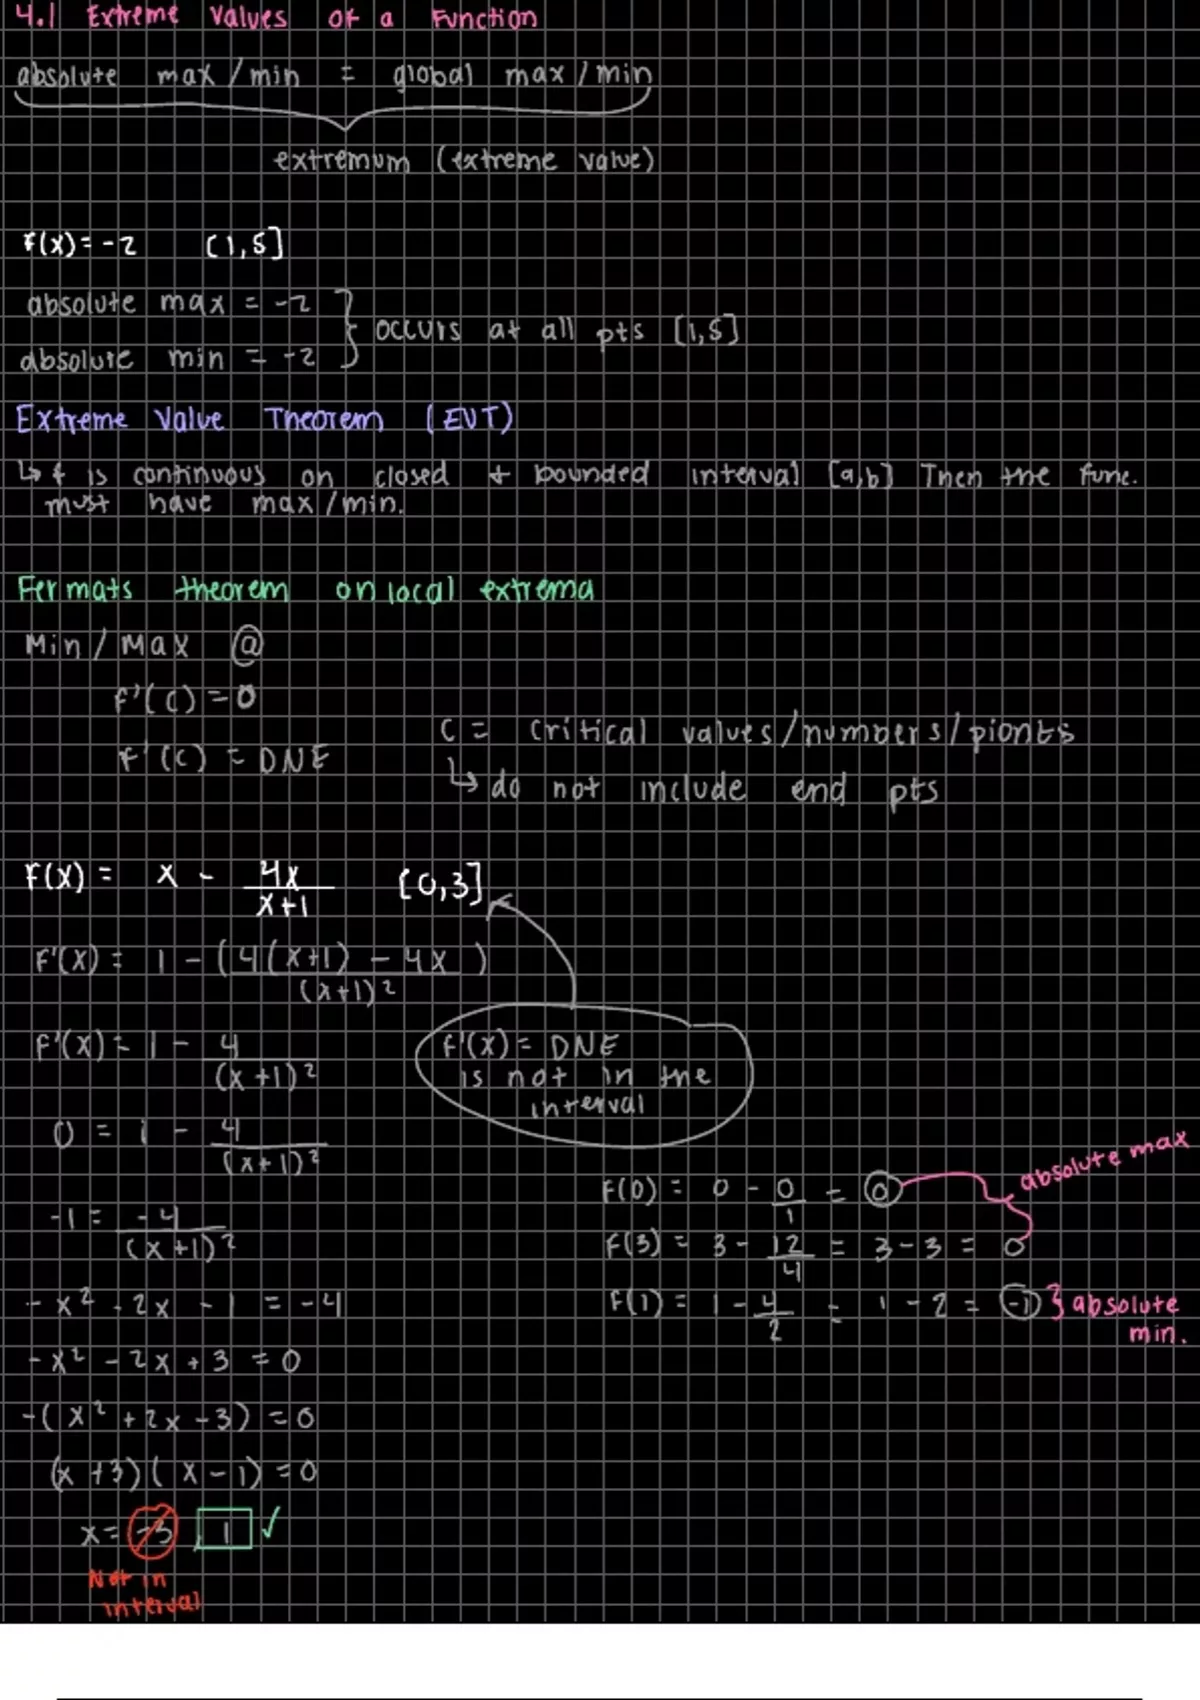 4.1 Extreme Values of a Function
absolute max/min = global max/min
extremum (extreme value)
f(x) = -2 [1,5]
absolute max = -2
absolute min = -2
occurs at all pts [1,5]
Extreme Value Theorem (EVT)
↳ f is continuous on closed + bounded interval [a,b] Then the func.
must have max/min.
Fermats theorem on local extrema
Min/Max @
f'(c) = 0
f'(c) = DNE
c = critical values/numbers/pionts
↳ do not include end pts
f(x) = x - 4x/(x+1) [0,3]
f'(x) = 1 - (4(x+1) - 4x)/(x+1)²
f'(x) = 1 - 4/(x+1)²
f'(x) = DNE
is not in the
interval
0 = 1 - 4/(x+1)²
-1 = -4/(x+1)²
-x² - 2x - 1 = -4
-x² - 2x + 3 = 0
-(x² + 2x - 3) = 0
(x+3)(x-1) = 0
x = -3, 1 ✓
Not in
interval
f(0) = 0 - 0/1 = 0
absolute max
f(3) = 3 - 12/4 = 3 - 3 = 0
f(1) = 1 - 4/2 = 1 - 2 = -1 } absolute
min.